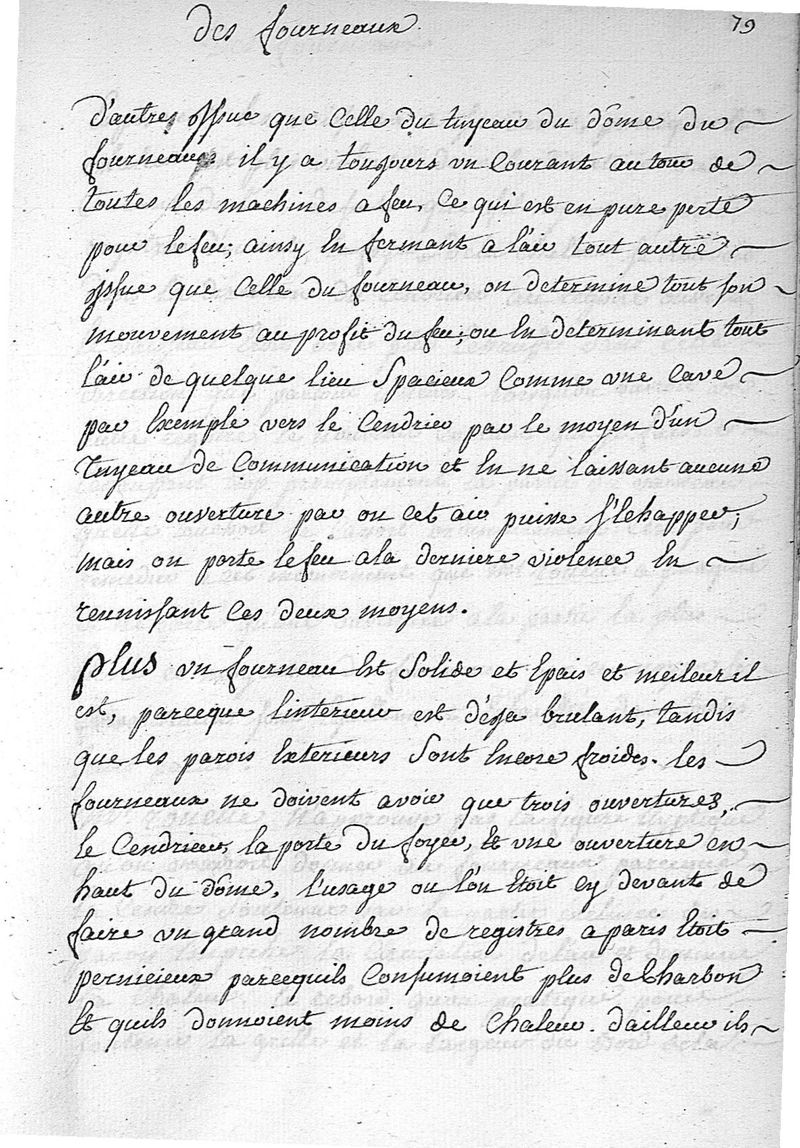 des fourneaux.
79
d'autres issue que Celle du tuyeau du dôme du
fourneau: il y a toujours un Courant autour de
toutes les machines a feu, Ce qui est en pure perte
pour le feu; ainsy En fermant a l'air tout autre
issue que Celle du fourneau, on determine tout son
mouvement au profit du feu; ou En determinant tout
l'air de quelque lieu Spacieux Comme une Cave
par Exemple vers le Cendrier par le moyen d'un
Tuyeau de Communication et En ne laissant aucune
autre ouverture par ou cet air puisse s'Echapper;
mais on porte le feu a la derniere violence En
reunissant Ces deux moyens.
plus un fourneau Est Solide et Epais et meileur il
est, parceque l'interieur est déja brulant, tandis
que les parois Exterieurs Sont Encore froides. les
fourneaux ne doivent avoir que trois ouvertures,
le Cendrier, la porte du foyer, Et une ouverture en
haut du dôme, l'usage ou l'on Etoit cy devant de
faire un grand nombre de registres a paris Etoit
pernicieux parcequils Consumoient plus de Charbon
Et quils donnoient moins de Chaleur. d'ailleur ils